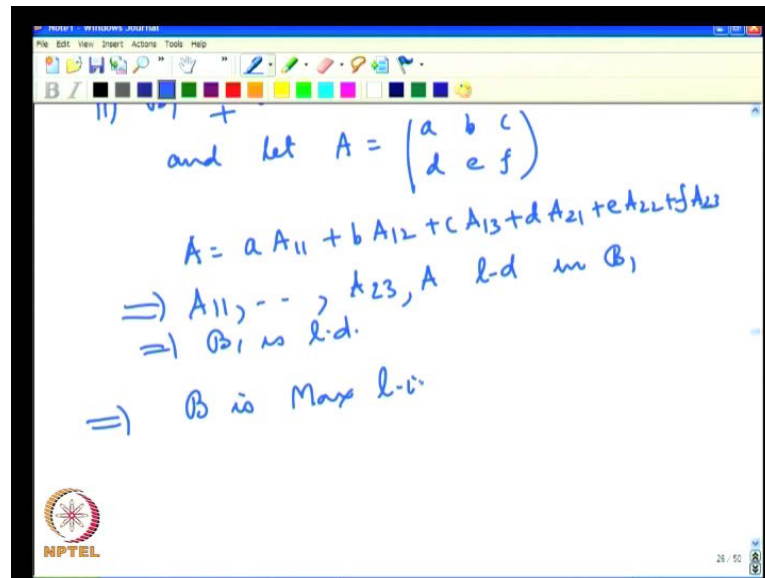 Note1 - Windows Journal
File Edit View Insert Actions Tools Help
B I
and let A = ( a b c
d e f )
A = a A11 + b A12 + c A13 + d A21 + e A22 + f A23
=) A11, - - , A23, A l-d in B1
=) B1 is l.d.
=) B is Max l-i.
NPTEL
26 / 50